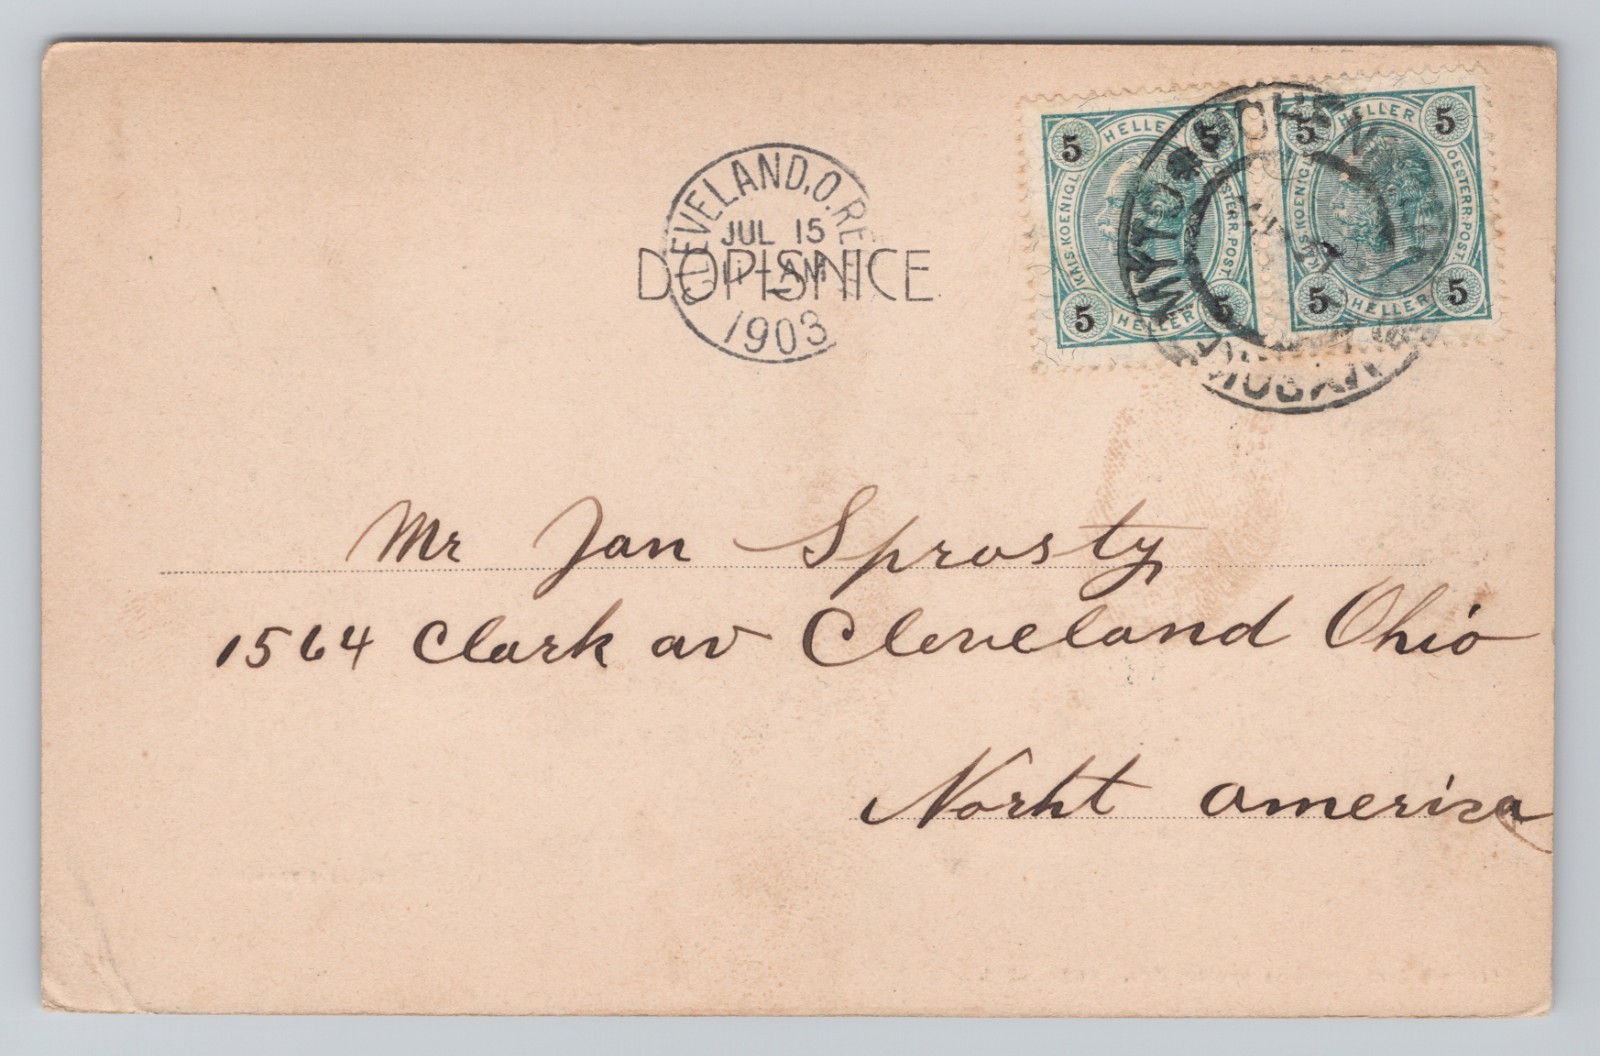 CLEVELAND, O. RE
JUL 15
11-AM
1903
DOPISNICE
5 HELLER 5
KAIS. KOENIGL. OESTERR. POST
5 HELLER 5
5 HELLER 5
KAIS. KOENIGL. OESTERR. POST
5 HELLER 5
Mr Jan Sprosty
1564 Clark av Cleveland Ohio
Norht America